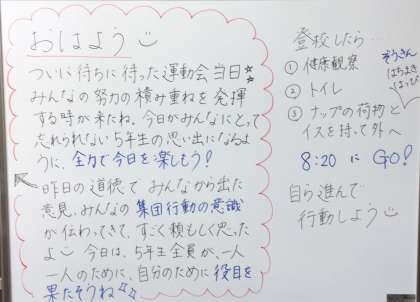 おはよう
ついに待ちに待った運動会当日
みんなの努力の積み重ねを発揮
する時が来たね。今日がみんなにとって
忘れられない5年生の思い出になるよ
うに、全力で今日を楽しもう!
昨日の道徳でみんなから出た
意見、みんなの集団行動の意識
が伝わってきて、すごく頼もしく思った
よ 今日は、5年生全員が、一人
一人のために、自分のために役目を
果たそうね
登校したら…
① 健康観察
② トイレ
③ ナップの荷物と
イスを持って外へ
ぞうきん
はちまき
8:20 に GO!
自ら進んで
行動しよう